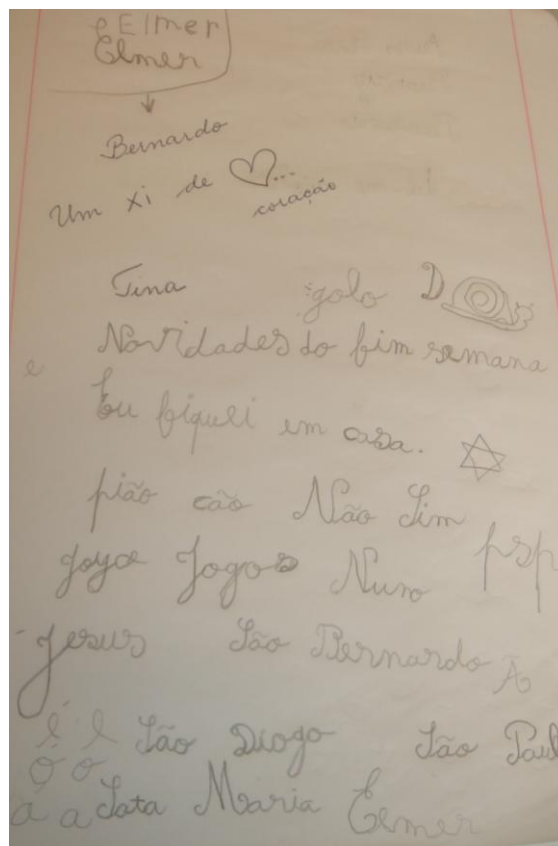 e Elmer
Elmer
Bernardo
Um xi de ...
coração
Tina golo D
Novidades do fim semana
e
Eu fiquei em casa.
pião cão Não Sim
Joyce Jogos Nuno psp
Jesus São Bernardo Ã
é l São Diogo São Paul
o o
a a Sata Maria Elmer